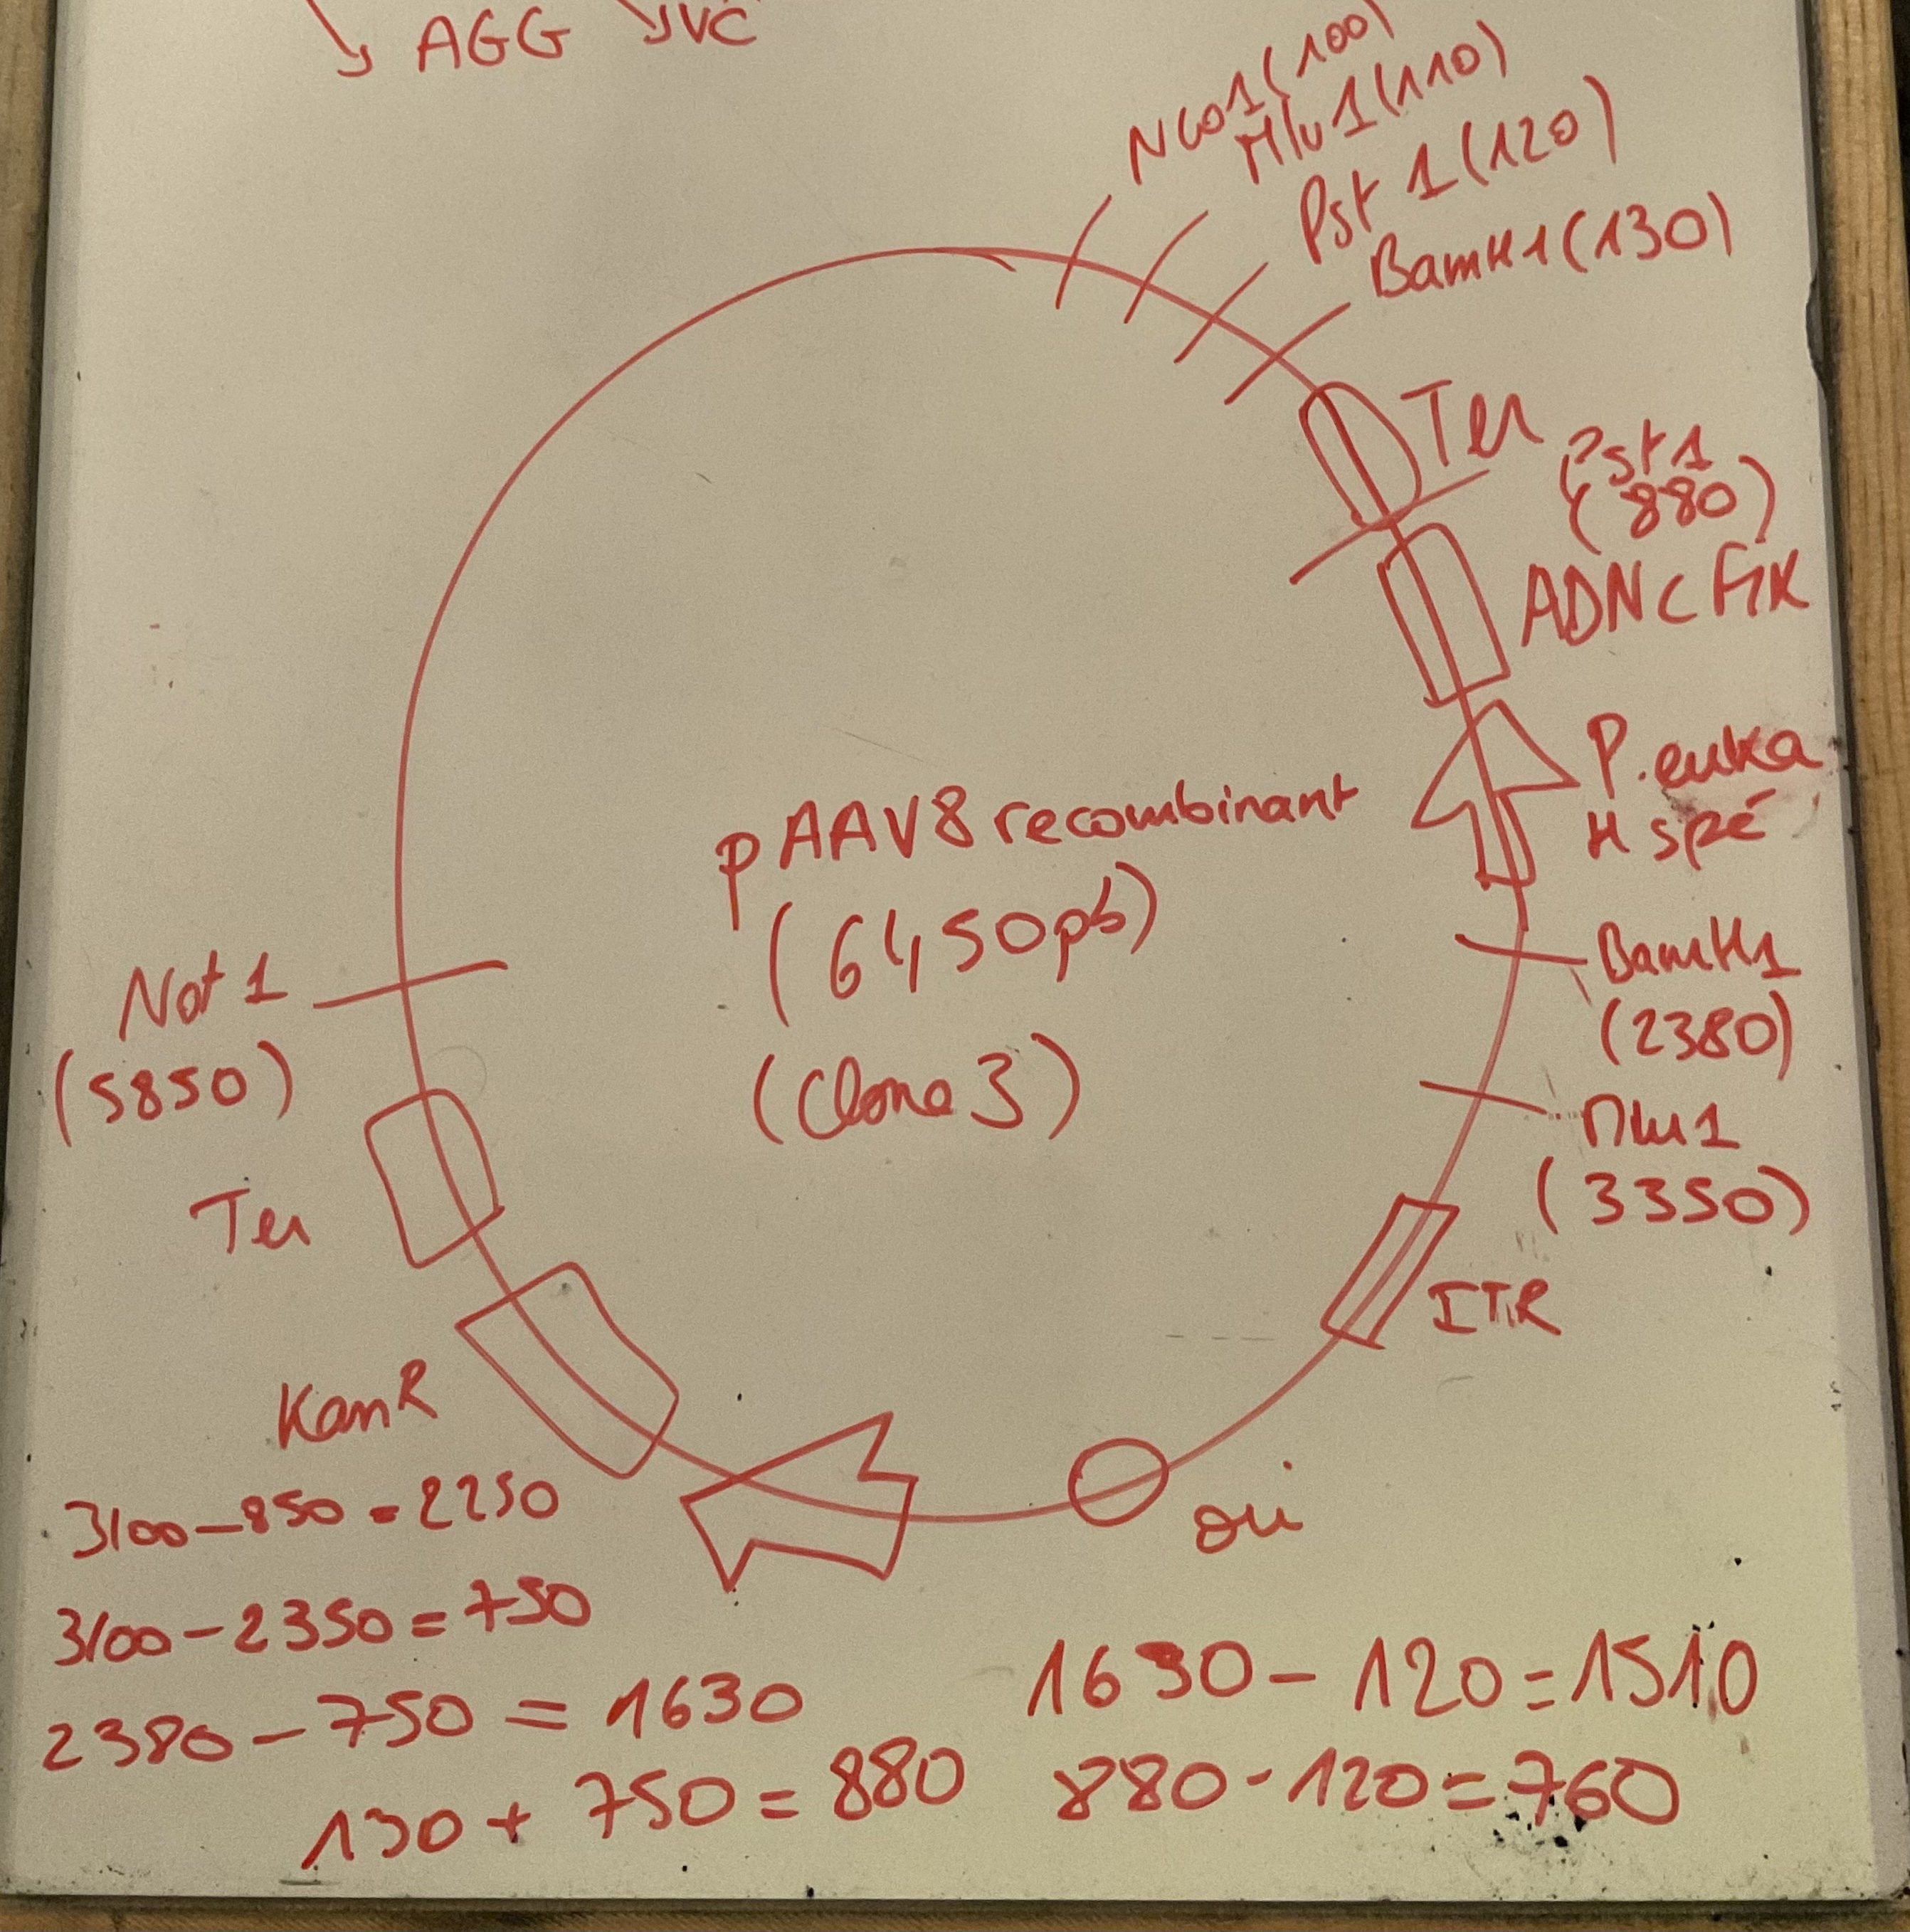 ↘ AGG ↘ JVC
Nco1(100)
Mlu1(110)
Pst 1(120)
BamH1(130)
Ter
Pst 1
(880)
ADNc FIX
P.euka
H spé
pAAV8 recombinant
(6450pb)
(Clone 3)
BamH1
(2380)
Mlu1
(3350)
Not 1
(5850)
Ter
ITR
KanR
ori
3100-850=2250
3100-2350=750
2380-750=1630
130+750=880
1630-120=1510
880-120=760